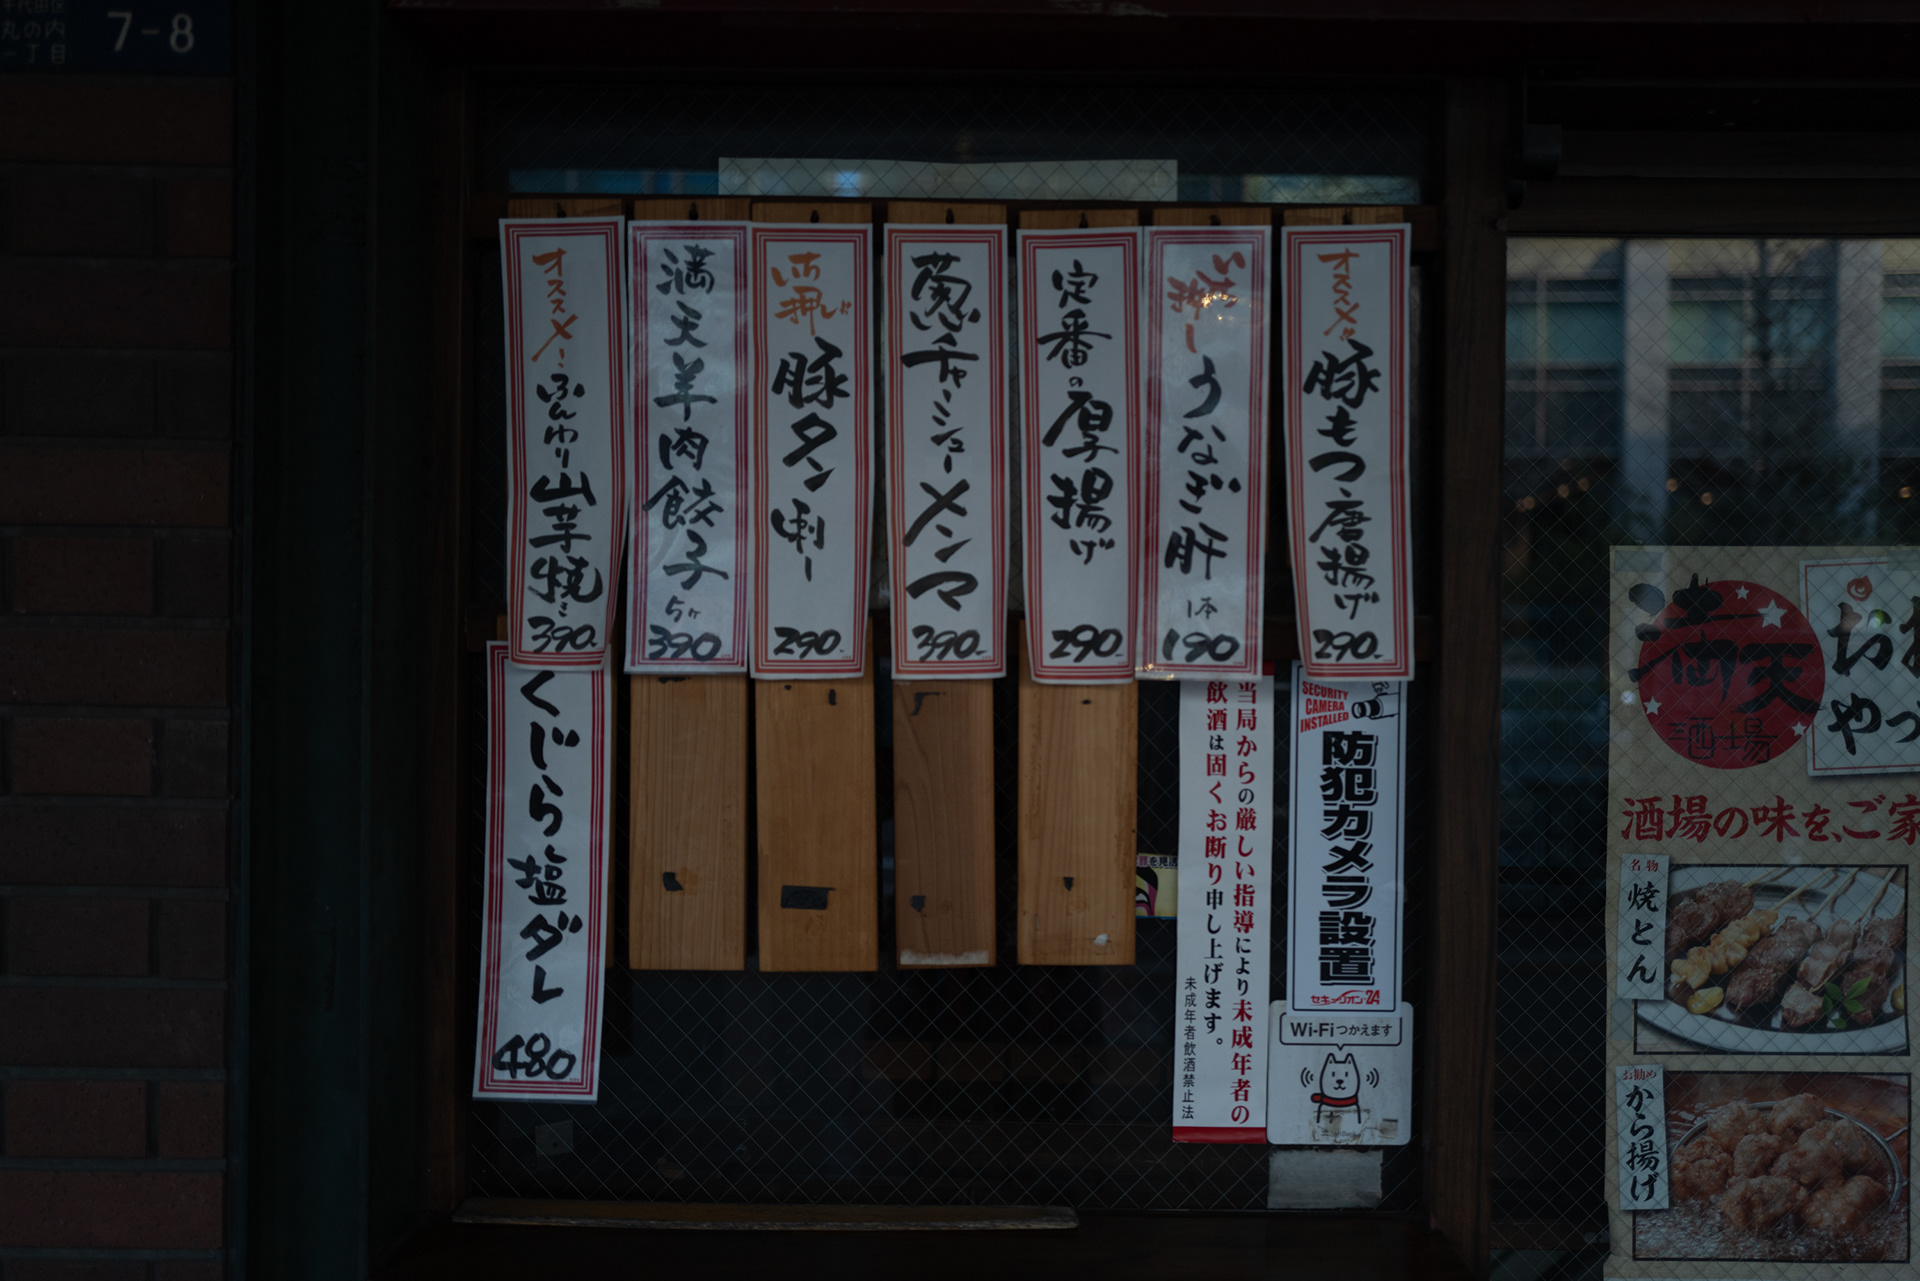 千代田区
丸の内
一丁目
7-8
オススメ!
ふんわり山芋焼き
390.-
満天羊肉餃子
5ヶ
390
いち押し!!
豚タン刺し
290.-
葱チャーシューメンマ
390.-
定番の厚揚げ
290.-
いち押し
うなぎ肝
1本
190
オススメ!!
豚もつ唐揚げ
290.-
くじら塩ダレ
480
当局からの厳しい指導により未成年者の
飲酒は固くお断り申し上げます。
未成年者飲酒禁止法
SECURITY
CAMERA
INSTALLED
防犯カメラ設置
セキュリオン24
Wi-Fiつかえます
満天
酒場
酒場の味を、ご家
名物
焼とん
お勧め
から揚げ